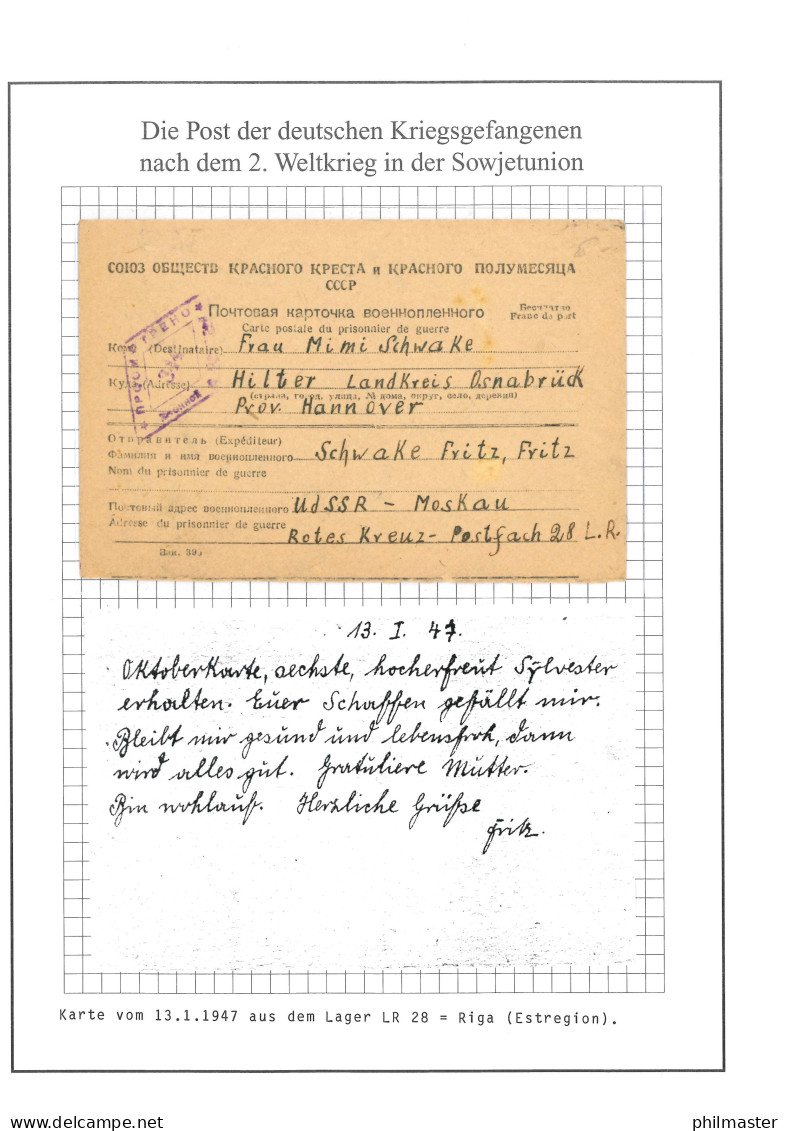 Die Post der deutschen Kriegsgefangenen
nach dem 2. Weltkrieg in der Sowjetunion
СОЮЗ ОБЩЕСТВ КРАСНОГО КРЕСТА и КРАСНОГО ПОЛУМЕСЯЦА
СССР
Почтовая карточка военнопленного
Бесплатно
Carte postale du prisonnier de guerre
Franc de port
Кому (Destinataire) Frau Mimi Schwake
Куда (Adresse) Hilter Landkreis Osnabrück
(страна, город, улица, № дома, округ, село, деревня)
Prov. Hannover
Отправитель (Expéditeur)
Фамилия и имя военнопленного Schwake Fritz, Fritz
Nom du prisonnier de guerre
Почтовый адрес военнопленного UdSSR – Moskau
Adresse du prisonnier de guerre
Rotes Kreuz- Postfach 28 L.R.
Зак. 395
ПРОСМОТРЕНО
13. I. 47.
Oktoberkarte, sechste, hocherfreut Sylvester
erhalten. Euer Schaffen gefällt mir.
Bleibt mir gesund und lebensfroh, dann
wird alles gut. Gratuliere Mutter.
Bin wohlauf. Herzliche Grüße
Fritz.
Karte vom 13.1.1947 aus dem Lager LR 28 = Riga (Estregion).
philatelie-welt.com
philmaster